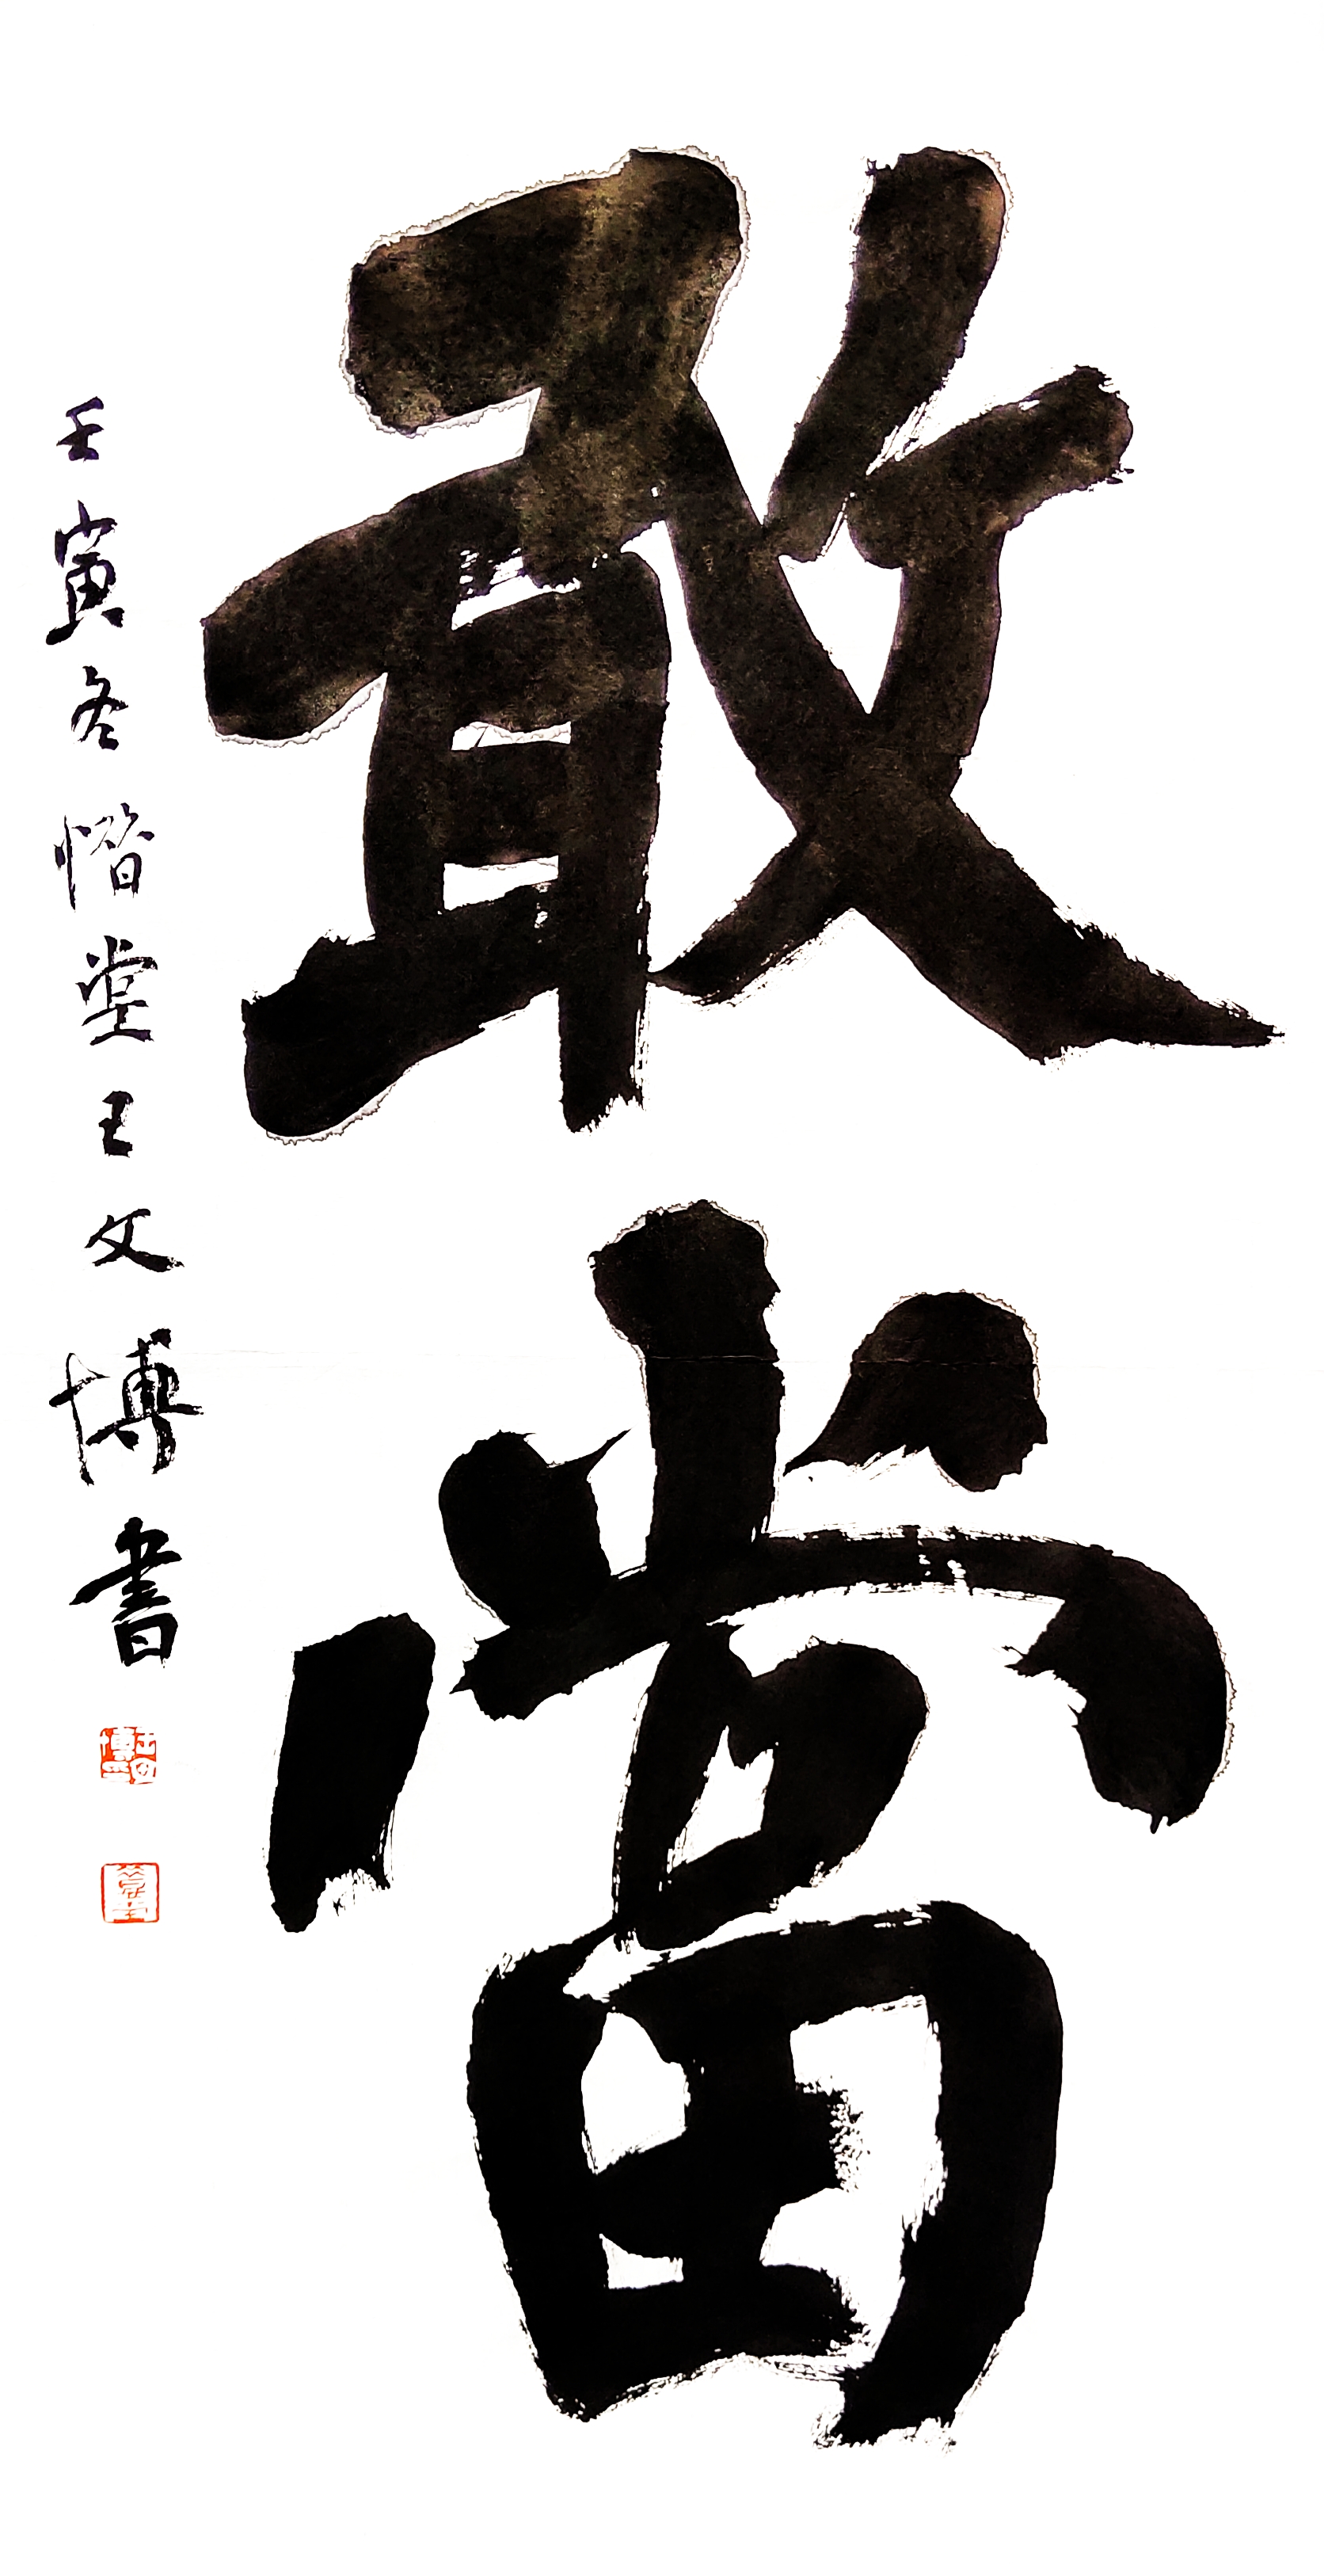 敢當
壬寅冬堂王文博書